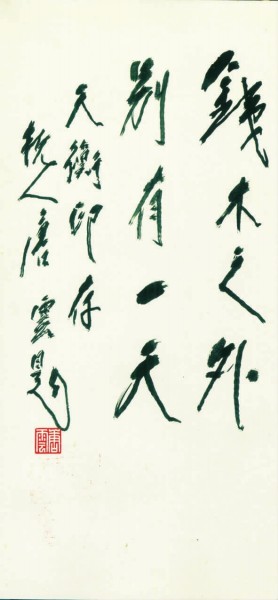 鐵木之外
別有一天
天衡印存
杭人唐雲題
唐雲